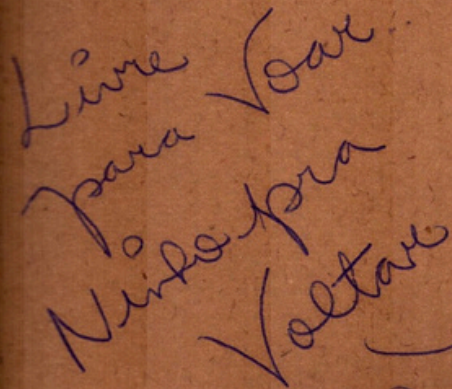 Livre
para Voar..
Ninho pra
Voltar